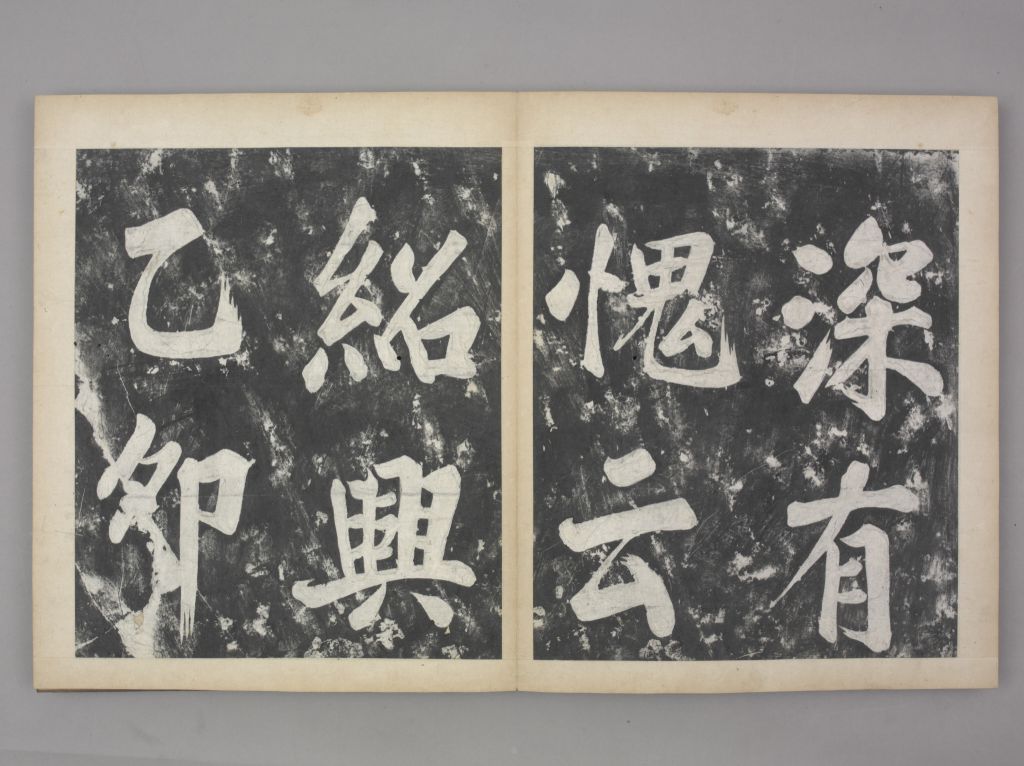 深有
愧云
紹興
乙卯